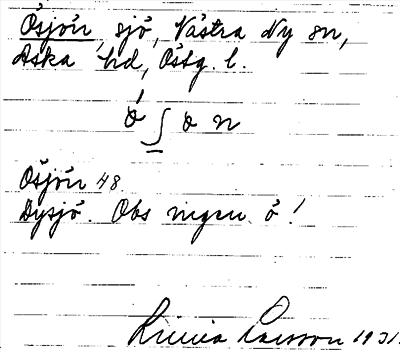 Ösjön, sjö, Västra Ny sn,
Aska hd, Östg. l.
ǿ ʃ ø n
Ösjön 48
Dysjö. Obs ingen ö!
Linnea Larsson 1931.